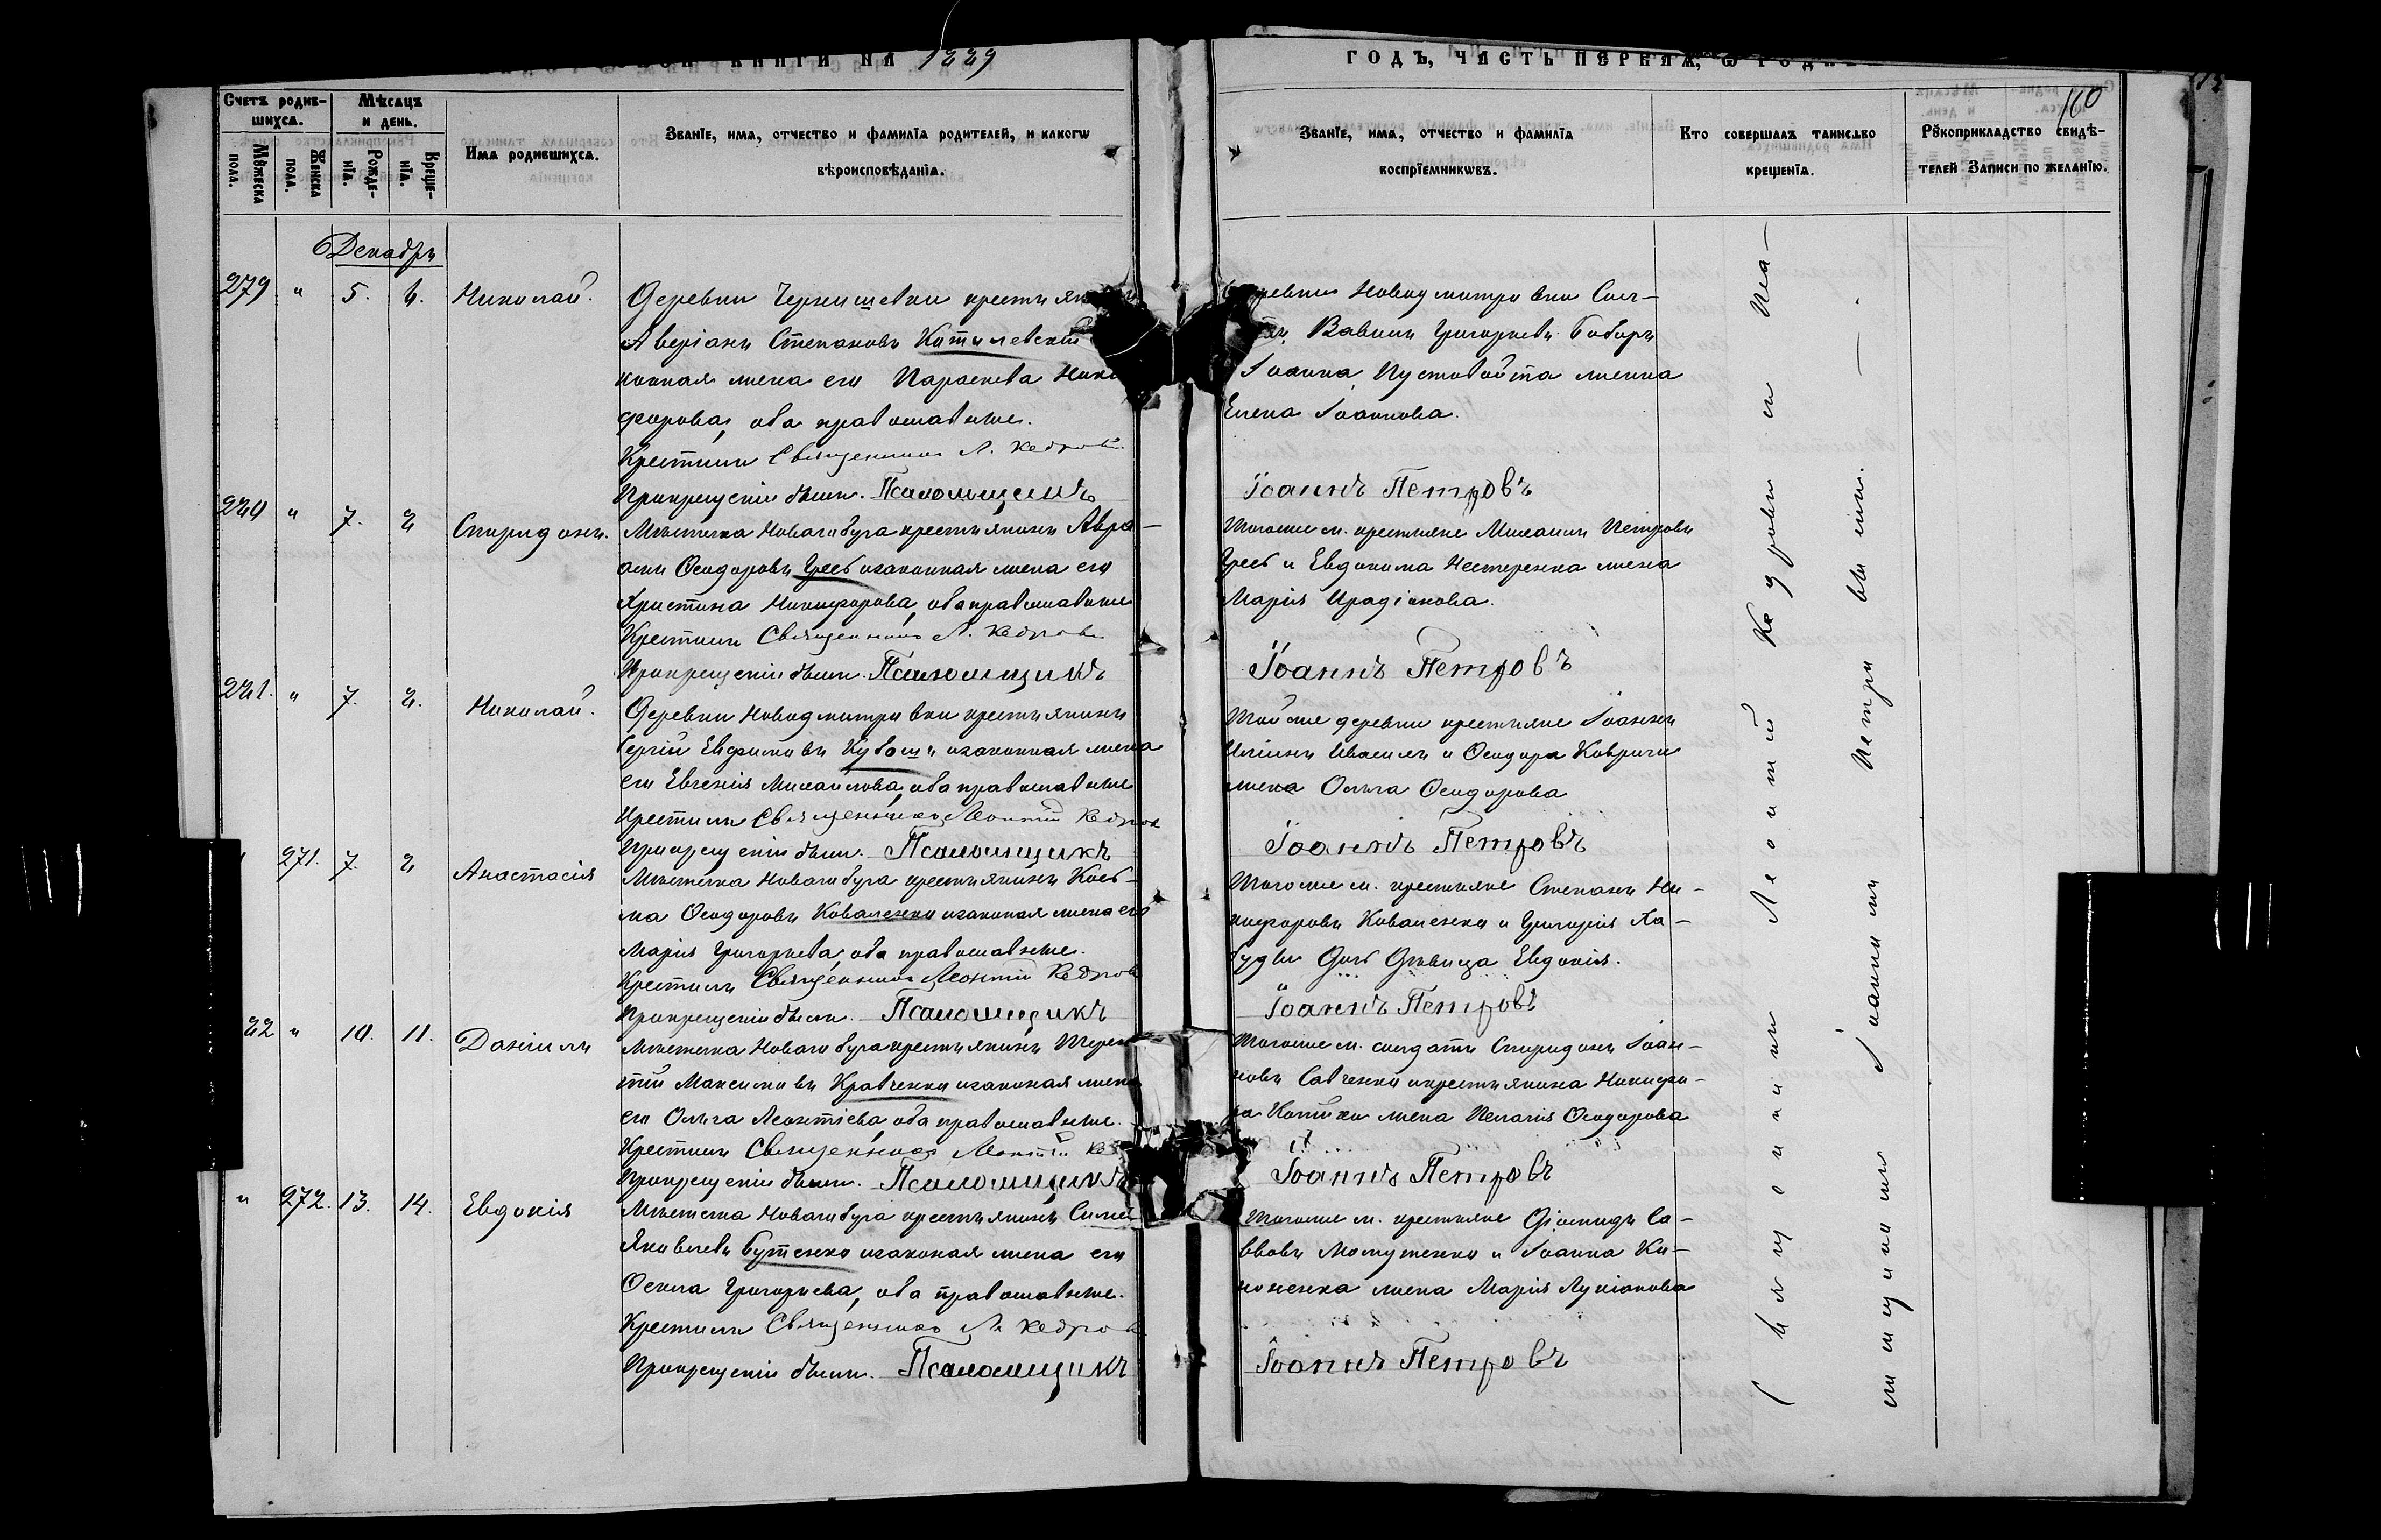 КНИГИ НА 1889
ГОДЪ, ЧАСТЬ ПЕРВАЯ, Ѡ
160
Счетъ родив-
шихсѧ.
Мѣсѧцъ
и день.
Мꙋжеска
пола.
Женска
пола.
Рожде-
нїѧ.
Креще-
нїѧ.
Имѧ родившихсѧ.
Званїе, имѧ, отчество и фамилїѧ родителей, и какогѡ
вѣроисповѣданїѧ.
Званїе, имѧ, отчество и фамилїѧ
воспрїемникѡвъ.
Кто совершалъ таинство
крещенїѧ.
Рꙋкоприкладство свидѣ-
телей записи по желанїю.
Декабрь
279 " 5. 6. Николай.
Деревни Чернишевки
Аверіанъ Степановъ
конная жена его Параскева Ники
форова, оба православные.
Крестилъ Священникъ Л. Кедровъ
При крещеніи былъ. Псаломщикъ
Новодмитровки Сол-
Вавилъ Григорьевъ Боборъ
Іоанна Пустовойта жена
Елена Іоаннова.
Іоаннъ Петровъ
280 " 7. 8 Спиридонъ.
Мѣстечка Новаго буга крестьянинъ Авра-
амъ Ѳеодоровъ Гресь и законная жена его
Христина Никифорова, оба православные
Крестилъ Священникъ Л. Кедровъ
При крещеніи былъ. Псаломщикъ
Тогоже м. крестьяне Михаилъ Петровъ
Гресь и Евдокима Нестеренка жена
Марія Иродіонова.
Іоаннъ Петровъ
281. " 7. 8. Николай.
Деревни Новодмитровки крестьянинъ
Сергій Евфимовъ и законная жена
его Евгенія Михайлова, оба православные
Крестилъ Священникъ Леонтій Кедров
При крещеніи былъ. Псаломщикъ
Тойже деревни крестьяне Іоаннъ
и Ѳеодора
жена Ольга Ѳеодорова
Іоаннъ Петровъ
271. 7. 8 Анастасія
Мѣстечка Новаго буга крестьянинъ Кось-
ма Ѳеодоровъ Коваленко и законная жена его
Марія Григорьева, оба православные.
Крестилъ Священникъ Леонтій Кедров
При крещеніи былъ. Псаломщикъ
Тогоже м. крестьяне Степанъ Ни-
кифоровъ Коваленко и Григорія Ха-
дочь дѣвица Евдокія.
Іоаннъ Петровъ
82 " 10. 11. Даніилъ
Мѣстечка Новаго буга крестьянинъ Терен
тій Максимовъ Кравченко и законная жена
его Ольга Леонтіева, оба православные.
Крестилъ Священникъ Леонтій Ке
При крещеніи былъ. Псаломщикъ
Тогоже м. солдатъ Спиридонъ Іоан-
новъ Савченко и крестьянина Никифо-
ра жена Пелагія Ѳеодорова
Іоаннъ Петровъ
" 272. 13. 14. Евдокія
Мѣстечка Новаго буга крестьянинъ
Яковлевъ Бутенко и законная жена его
Ѳекла Григорьева, оба православные.
Крестилъ Священникъ Л. Кедров
При крещеніи былъ. Псаломщикъ
Тогоже м. крестьяне Діомидъ Са-
ввовъ и Іоанна Ки-
ноненка жена Марія Лукіанова
Іоаннъ Петровъ
Священникъ Леонтій Кедровъ съ пса-
ломщикомъ Іоанномъ Петровымъ.